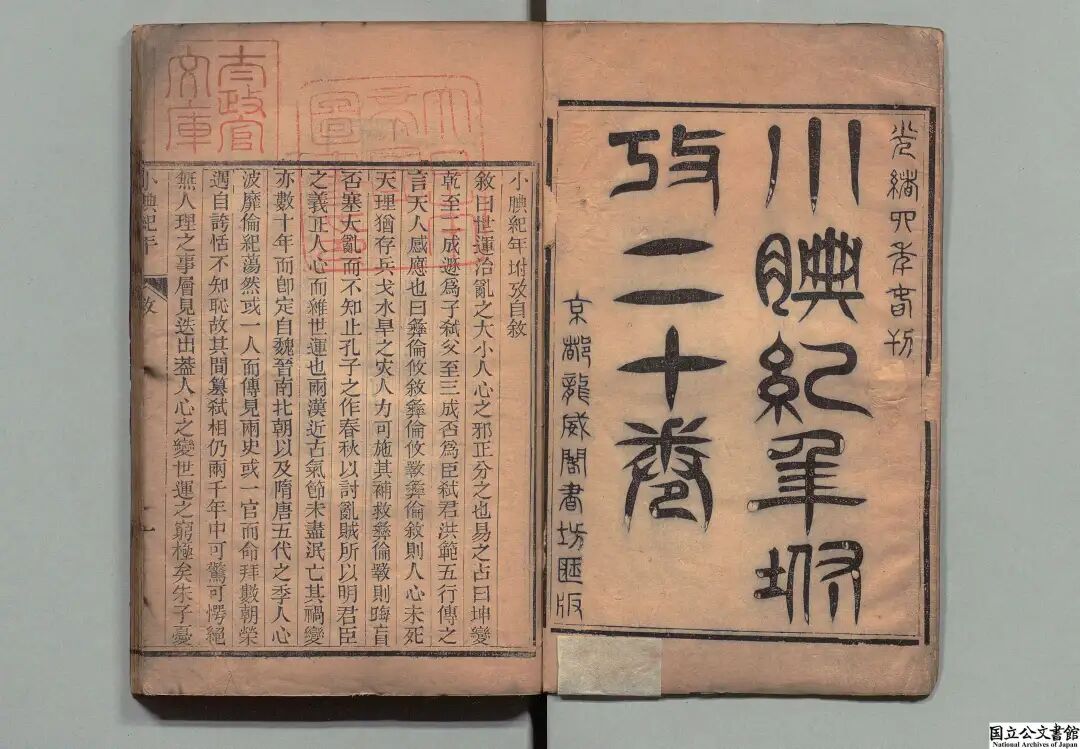 光緒四年春刊
小腆紀年坿
攷二十卷
京都龍威閣書坊匯版
太政官
文庫
小腆紀年坿攷自敘
敘曰世運治亂之大小人心之邪正分之也易之占曰坤變
乾至二成遯爲子弒父至三成否爲臣弒君洪範五行傳之
言天人感應也曰彝倫攸敘彝倫攸斁彝倫敘則人心未死
天理猶存兵戈水旱之灾人力可施其補救彝倫斁則晦盲
否塞大亂而不知止孔子之作春秋以討亂賊所以明君臣
之義正人心而維世運也兩漢近古氣節未盡泯亡其禍變
亦數十年而卽定自魏晉南北朝以及隋唐五代之季人心
波靡倫紀蕩然或一人而傳見兩史或一官而命拜數朝榮
遇自誇恬不知恥故其間篡弒相仍兩千年中可驚可愕絕
無人理之事層見迭出蓋人心之變世運之窮極矣朱子憂
小腆紀年 敘 一
国立公文書館
National Archives of Japan